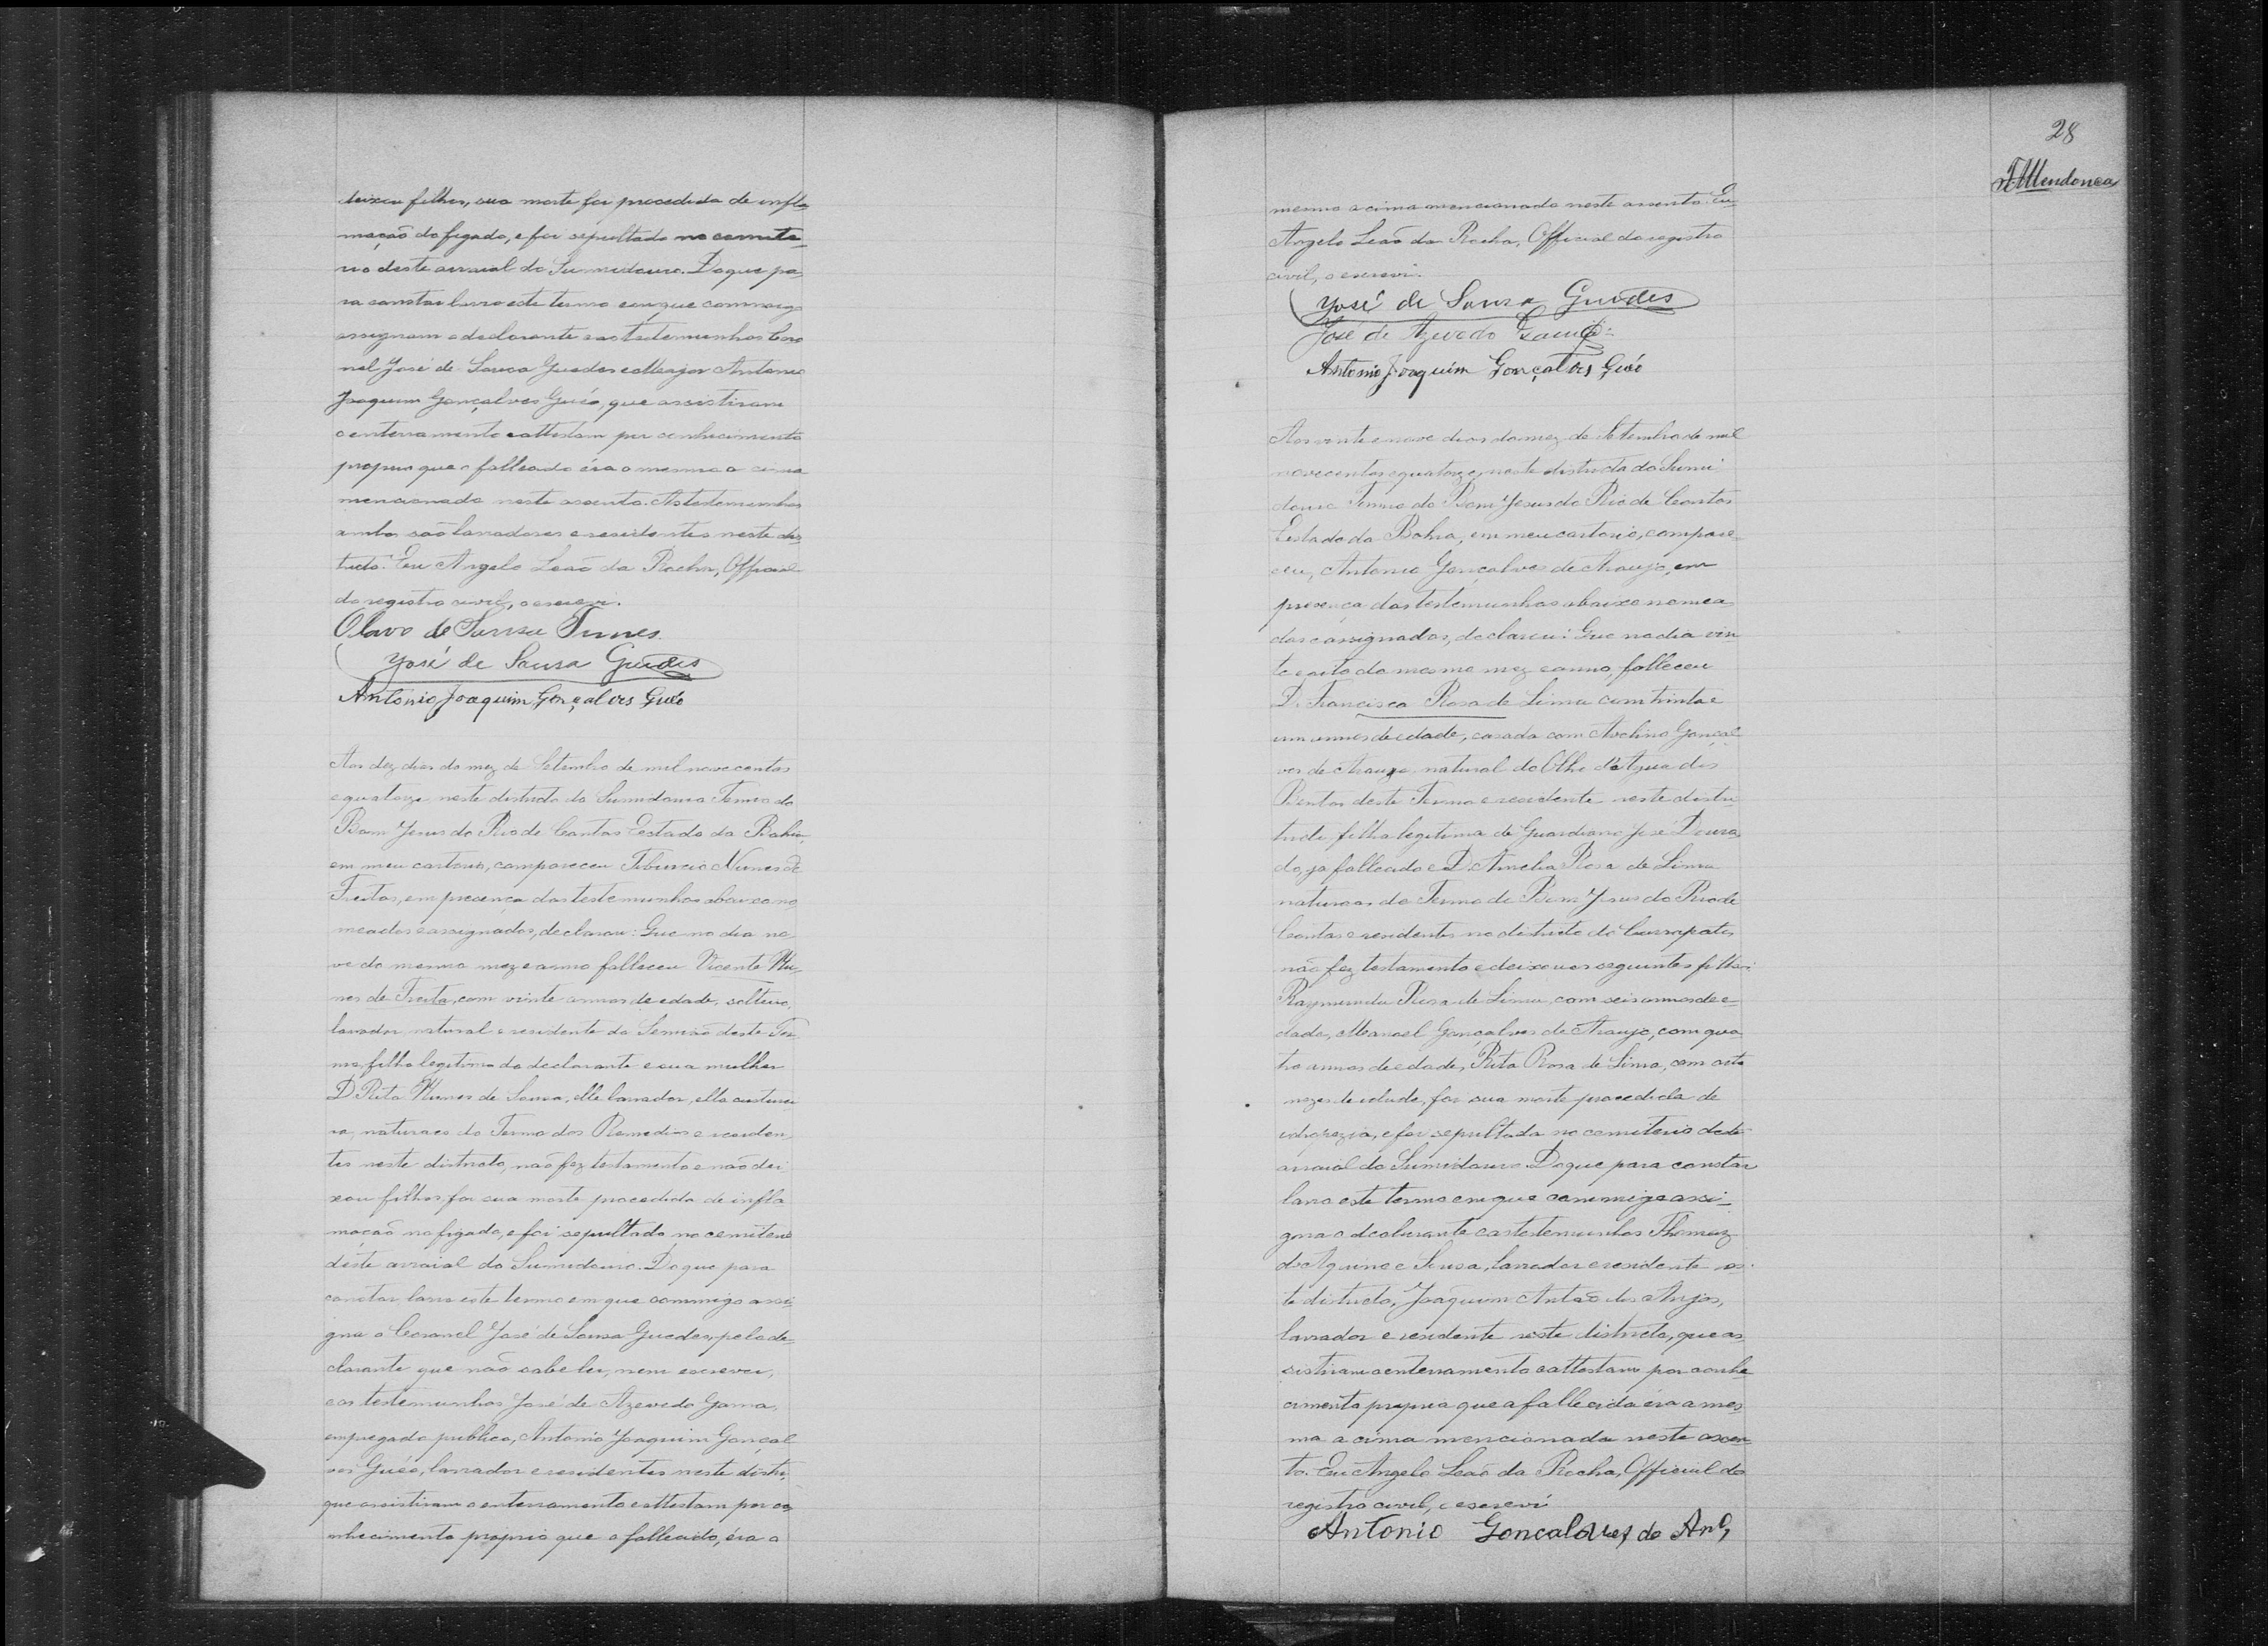 deixou filhos, sua morte foi procedida de infla-
mação do figado, e foi sepultado no cemite-
rio deste arraial do Sumidouro. Do que pa-
ra constar lavro este termo em que commigo
assignam o declarante e as testemunhas Coro
nel José de Sousa Guedes e Major Antonio
Joaquim Gonçalves Guéo, que assistiram
o enterramento e attestam por conhecimento
proprio que o fallecido éra o mesmo a cima
mencionado neste assento. As testemunhas
ambos são lavradores e residentes neste dis-
tricto. Eu Angelo Leão da Rocha, Official
do registro civil, o escrevi.
Olavo de Sousa Nunes
José de Sousa Guedes
Antonio Joaquim Gonçalves Guéo
Aos dez dias do mez de Setembro de mil nove centos
e quatorze, neste districto do Sumidouro Termo do
Bom Jesus do Rio de Contas Estado da Bahia,
em meu cartorio, compareceu Tiburcio Nunes de
Freitas, em presença das testemunhas abaixo no-
meadas e assignados, declarou: Que no dia no-
ve do mesmo mez e anno falleceu Vicente Nu-
nes de Freita, com vinte annos de edade, solteiro,
lavrador natural e residente do deste Ter-
mo, filho legitimo do declarante e sua mulher
D. Rita Nunes de Sousa, elle lavrador, ella costurei
ra, naturaes do Termo dos Remedios e residen-
tes neste districto, não fez testamento e não dei
xou filhos, foi sua morte procedida de infla
mação no figado, e foi sepultado no cemiterio
deste arraial do Sumidouro. Do que para
constar, lavro este termo em que commigo assi-
gna o Coronel José de Sousa Guedes, pelo de-
clarante que não sabe ler, nem escrever,
e as testemunhas José de Azevedo Gama,
empregado publico, Antonio Joaquim Gonçal
ves Guéo, lavrador e residentes neste distri,
que assistiram o enterramento e attestam por co-
nhecimento proprio que o fallecido, éra o
28
Mendonca
mesmo a cima mencionado neste assento. Eu
Angelo Leão da Rocha, Official do registro
civil, o escrevi.
José de Sousa Guedes
José de Azevedo Gama
Antonio Joaquim Gonçalves Guéo
Aos vinte e nove dias do mez de Setembro de mil
novecentos e quatorze, neste districto do Sumi
douro Termo do Bom Jesus do Rio de Contas
Estado da Bahia, em meu cartorio, compare-
ceu, Antonio Gonçalves de Araujo, em
presença das testemunhas abaixo nomea
das e assignados, declarou: Que no dia vin-
te e oito do mesmo mez e anno, falleceu
D. Francisca Rosa de Lima com trinta e
um annos de edade, casada com Avelino Gonçal-
ves de Araujo natural do Olho d'Agua dos
Bentos deste Termo e residente neste distri
tricto filha legitima de Guardiano José Doura-
do, ja fallecido e D. Amelia Rosa de Lima
naturaes do Termo de Bom Jesus do Rio de
Contas e residentes no districto do Carrapato
não fez testamento e deixou os seguintes filhos:
Raymunda Rosa de Lima, com seis annos de e-
dade, Manoel Gonçalves de Araujo, com qua
tro annos de edade, Rita Rosa de Lima, com oito
mezes de edade, foi sua morte procedida de
hidropezia, e foi sepultada no cemiterio deste
arraial do Sumidouro. Do que para constar
lavro este termo em que commigo assi-
gna o declarante e as testemunhas Thomaz
de Aquino e Sousa, lavrador e residente nes-
te districto, Joaquim Antão dos Anjos,
lavrador e residente neste districto, que as
sistiram o enterramento e attestam por conhe
cimento proprio que a fallecida éra a mes-
ma a cima mencionada neste assen-
to. Eu Angelo Leão da Rocha, Official do
registro civil, o escrevi
Antonio Goncalves de Arº,